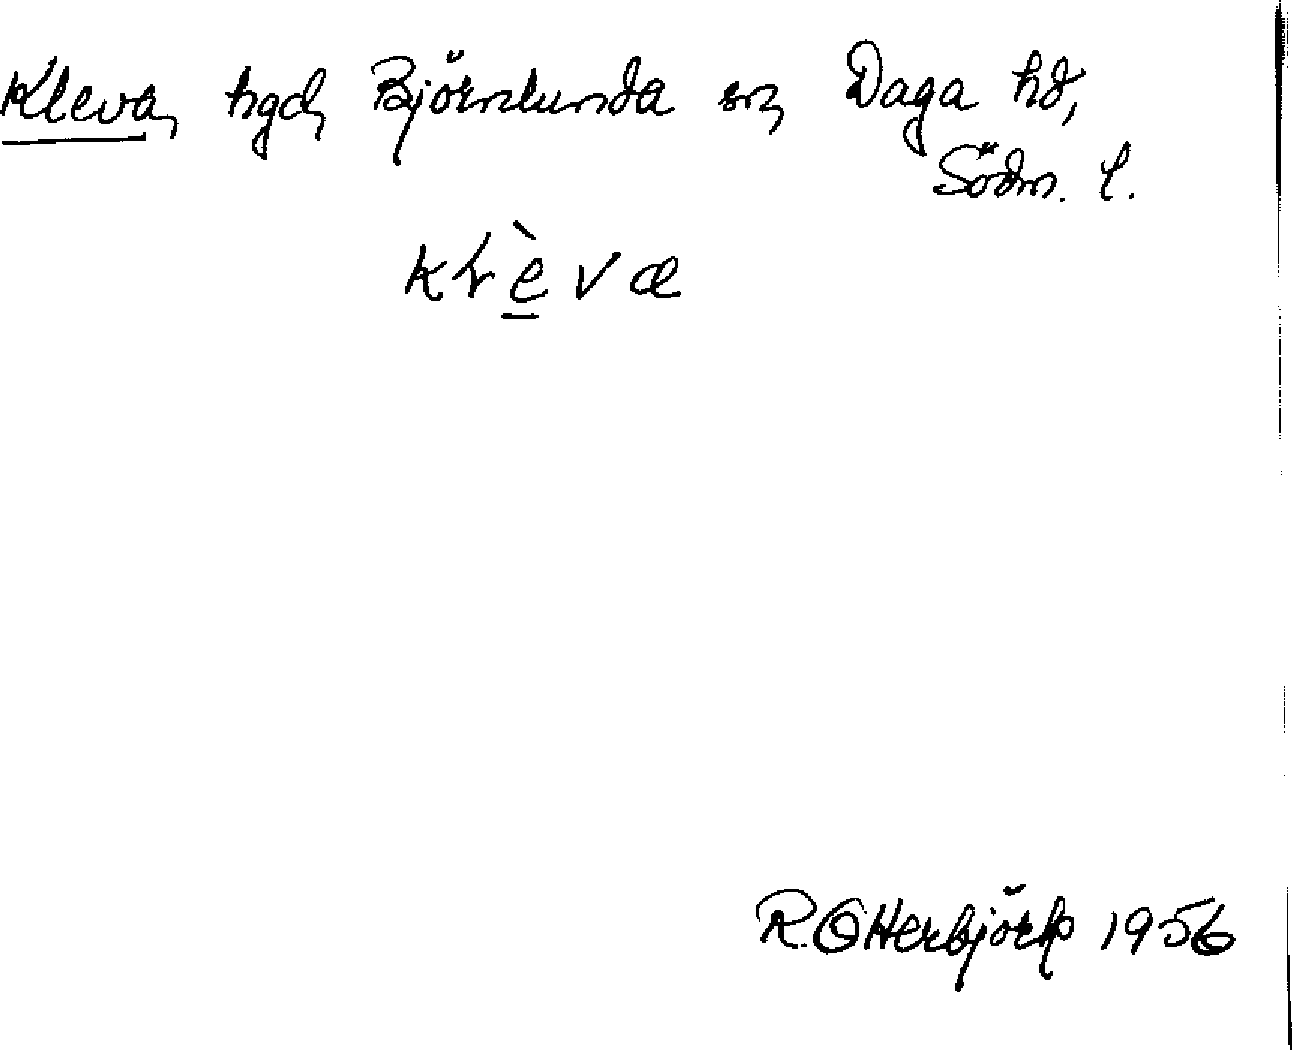 Kleva, hgd, Björnlunda sn, Daga hd,
Södm. l.
klèvæ
R. Otterbjörk 1956